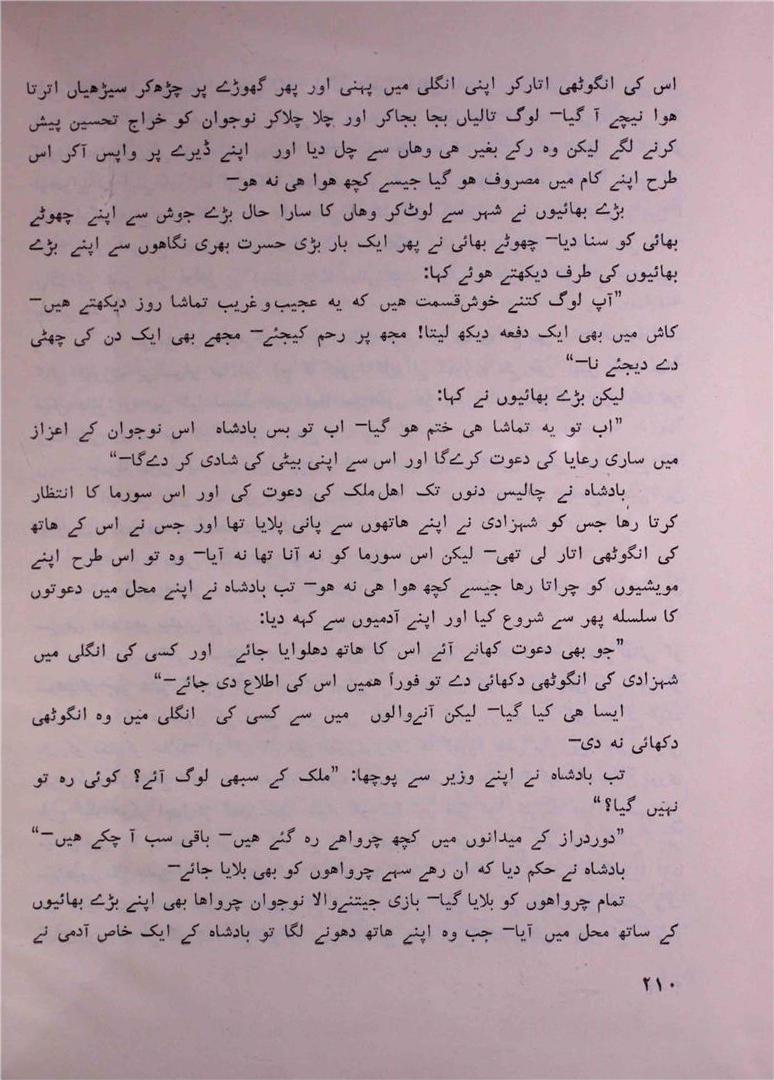 اس کی انگوٹھی اتارکر اپنی انگلی میں پہنی اور پھر گھوڑے پر چڑھکر سیڑھیاں اترتا
ھوا نیچے آ گیا— لوگ تالیاں بجا بجاکر اور چلا چلاکر نوجوان کو خراج تحسین پیش
کرنے لگے لیکن وہ رکے بغیر ھی وھاں سے چل دیا اور اپنے ڈیرے پر واپس آکر اس
طرح اپنے کام میں مصروف ھو گیا جیسے کچھ ھوا ھی نہ ھو—
بڑے بھائیوں نے شہر سے لوٹکر وھاں کا سارا حال بڑے جوش سے اپنے چھوٹے
بھائی کو سنا دیا— چھوٹے بھائی نے پھر ایک بار بڑی حسرت بھری نگاھوں سے اپنے بڑے
بھائیوں کی طرف دیکھتے ھوئے کہا:
”آپ لوگ کتنے خوش‌قسمت ھیں کہ یہ عجیب و غریب تماشا روز دیکھتے ھیں—
کاش میں بھی ایک دفعہ دیکھ لیتا! مجھ پر رحم کیجئے— مجھے بھی ایک دن کی چھٹی
دے دیجئے نا—“
لیکن بڑے بھائیوں نے کہا:
”اب تو یہ تماشا ھی ختم ھو گیا— اب تو بس بادشاہ اس نوجوان کے اعزاز
میں ساری رعایا کی دعوت کرےگا اور اس سے اپنی بیٹی کی شادی کر دےگا—“
بادشاہ نے چالیس دنوں تک اھل‌ملک کی دعوت کی اور اس سورما کا انتظار
کرتا رھا جس کو شہزادی نے اپنے ھاتھوں سے پانی پلایا تھا اور جس نے اس کے ھاتھ
کی انگوٹھی اتار لی تھی— لیکن اس سورما کو نہ آنا تھا نہ آیا— وہ تو اس طرح اپنے
مویشیوں کو چراتا رھا جیسے کچھ ھوا ھی نہ ھو— تب بادشاہ نے اپنے محل میں دعوتوں
کا سلسلہ پھر سے شروع کیا اور اپنے آدمیوں سے کہہ دیا:
”جو بھی دعوت کھانے آئے اس کا ھاتھ دھلوایا جائے اور کسی کی انگلی میں
شہزادی کی انگوٹھی دکھائی دے تو فوراً ھمیں اس کی اطلاع دی جائے—“
ایسا ھی کیا گیا— لیکن آنےوالوں میں سے کسی کی انگلی میں وہ انگوٹھی
دکھائی نہ دی—
تب بادشاہ نے اپنے وزیر سے پوچھا: ”ملک کے سبھی لوگ آئے؟ کوئی رہ تو
نہیں گیا؟“
”دوردراز کے میدانوں میں کچھ چرواھے رہ گئے ھیں— باقی سب آ چکے ھیں—“
بادشاہ نے حکم دیا کہ ان رھے سہے چرواھوں کو بھی بلایا جائے—
تمام چرواھوں کو بلایا گیا— بازی جیتنےوالا نوجوان چرواھا بھی اپنے بڑے بھائیوں
کے ساتھ محل میں آیا— جب وہ اپنے ھاتھ دھونے لگا تو بادشاہ کے ایک خاص آدمی نے
۲۱۰